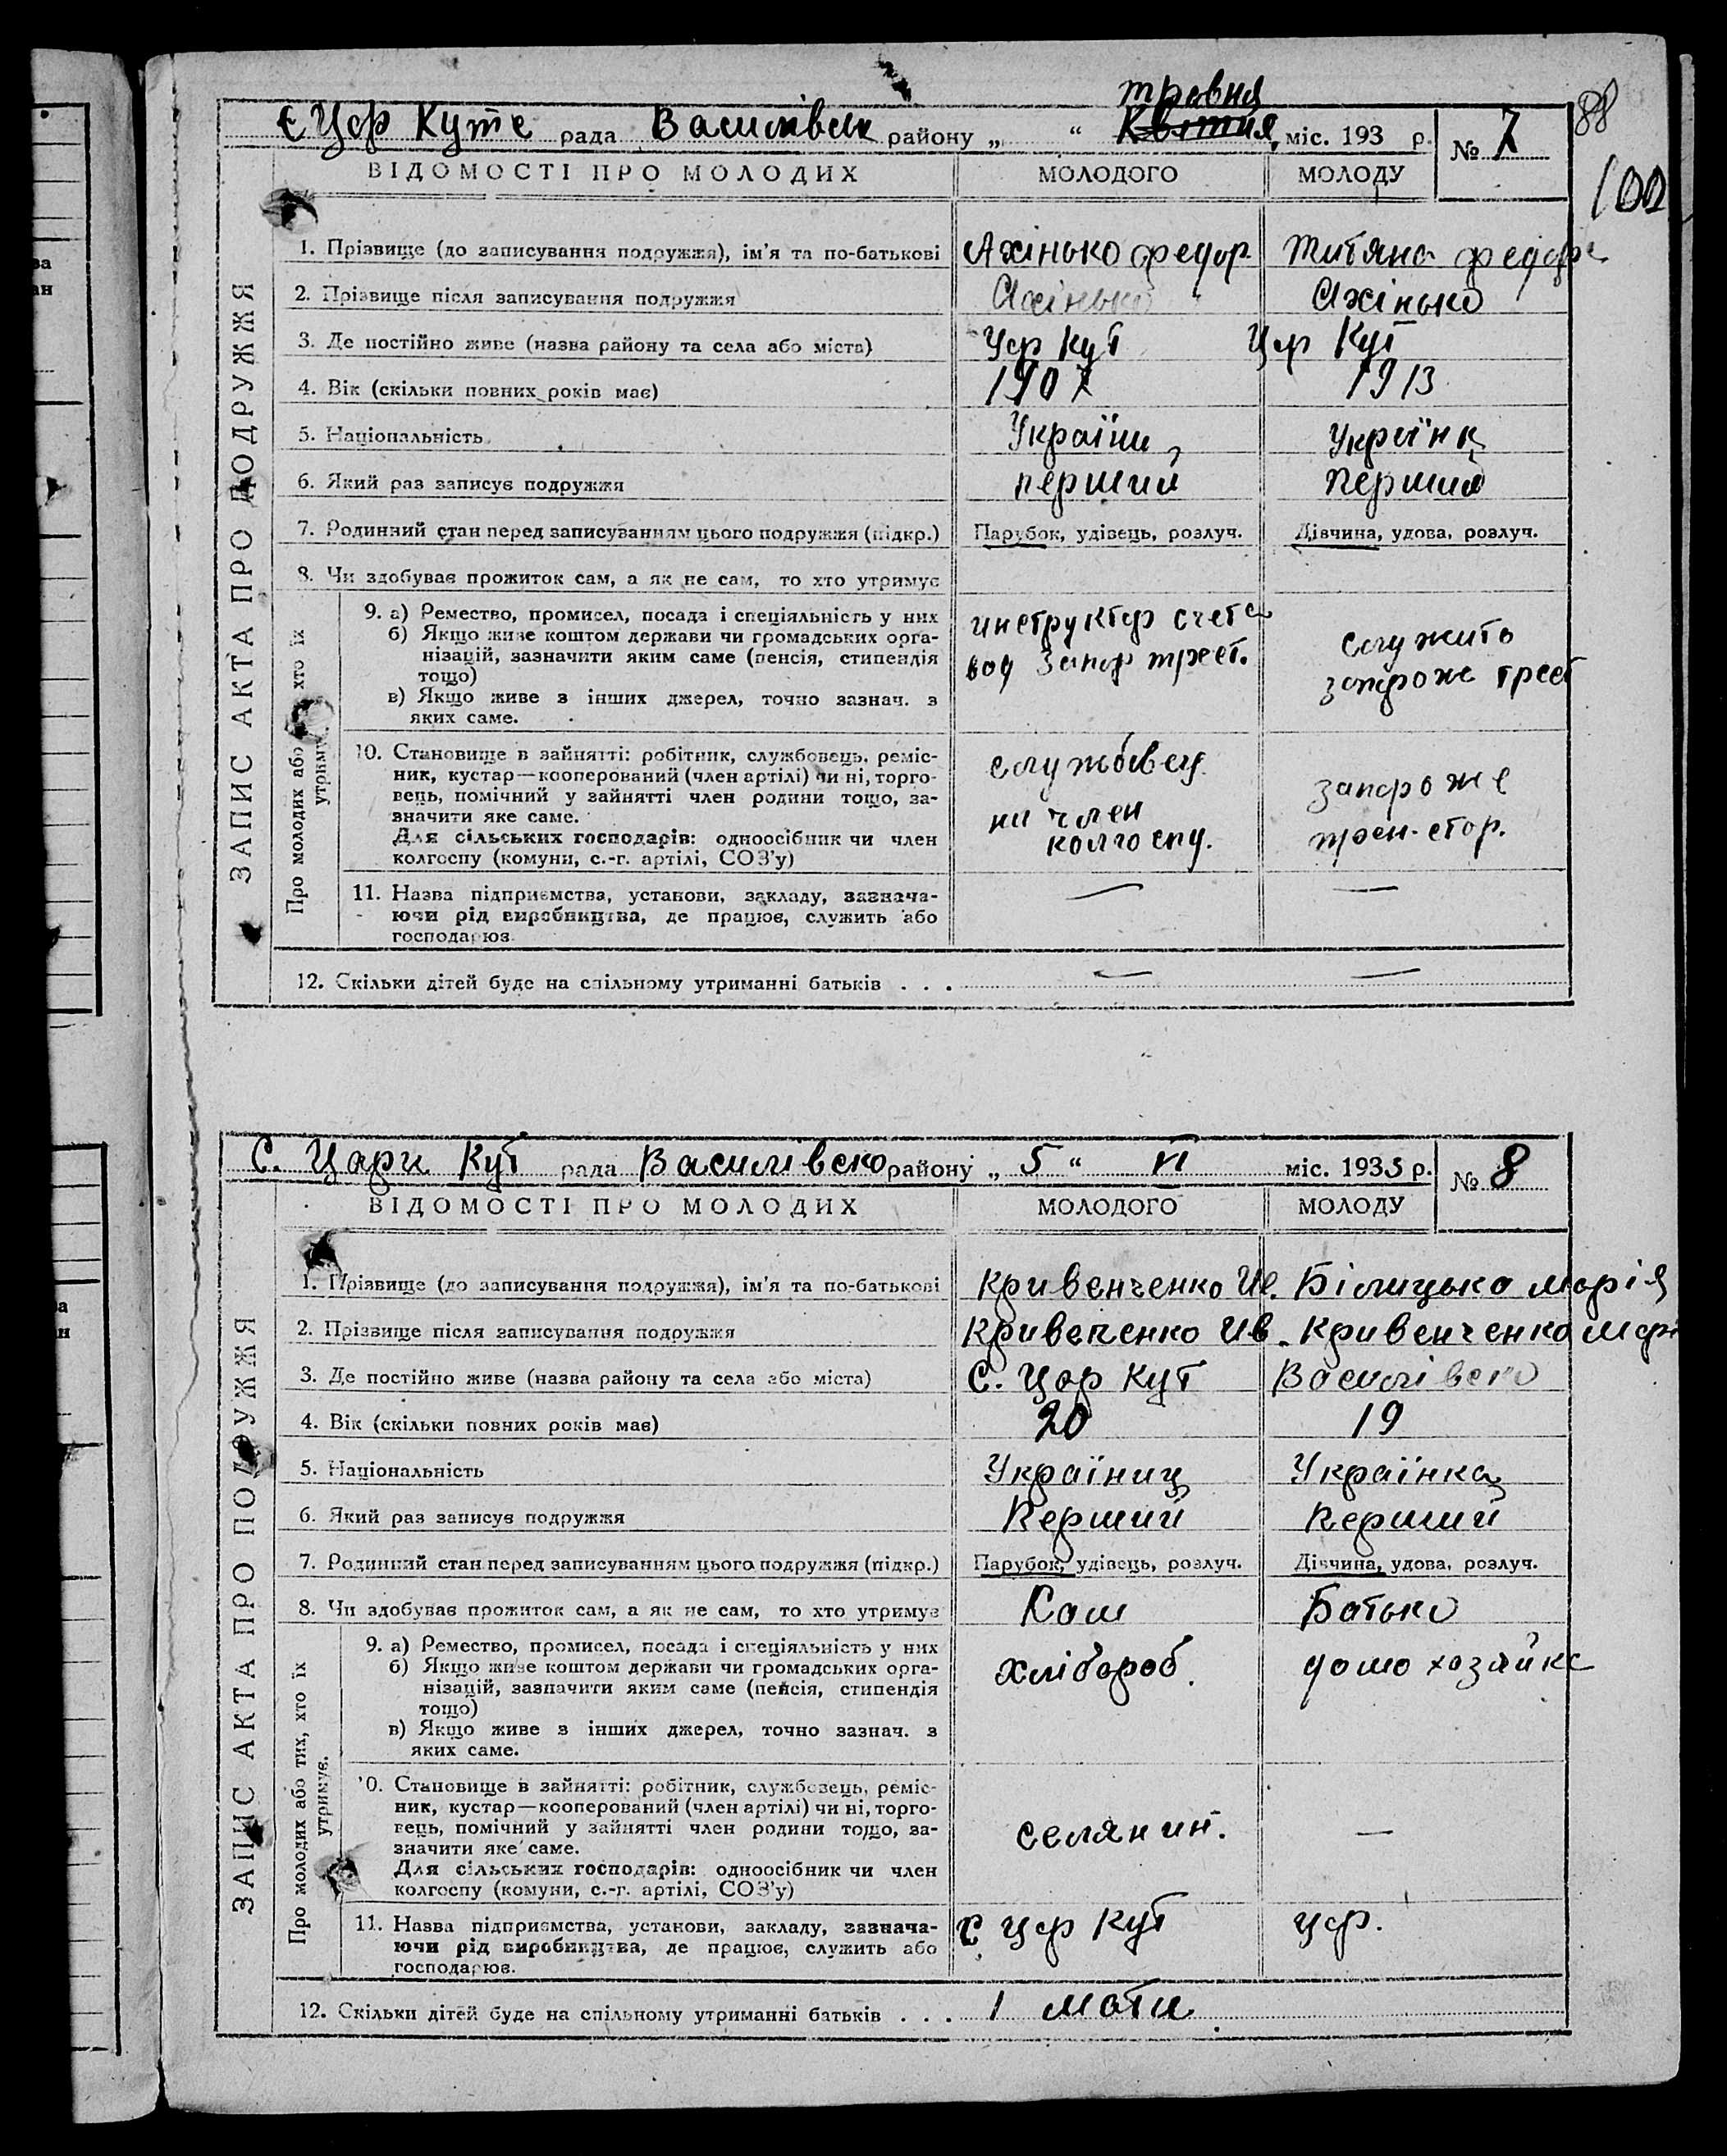 травня
Є Цар Куте рада Василівськ району „ “ Квітня, міс. 193 р. № 7
88
100
ВІДОМОСТІ ПРО МОЛОДИХ МОЛОДОГО МОЛОДУ
ЗАПИС АКТА ПРО ПОДРУЖЖЯ
1. Прізвище (до записування подружжя), ім'я та по-батькові Ахінько Федор Титяна Федор
2. Прізвище після записування подружжя Ахінько Ахінько
3. Де постійно живе (назва району та села або міста) Цар Кут Цар Кут
4. Вік (скільки повних років має) 1907 1913
5. Національність Україниц Українк
6. Який раз записує подружжя перший Перший
7. Родинний стан перед записуванням цього подружжя (підкр.) Парубок, удівець, розлуч. Дівчина, удова, розлуч.
8. Чи здобуває прожиток сам, а як не сам, то хто утримує
Про молодих або хто їх утримує
9. а) Ремество, промисел, посада і спеціяльність у них инструктор счета
б) Якщо живе коштом держави чи громадських орга- служить
нізацій, зазначити яким саме (пенсія, стипендія вод Запор трест.
тощо) запороже трест
в) Якщо живе з інших джерел, точно зазнач. з
яких саме.
10. Становище в зайнятті: робітник, службовець, реміс- службовец
ник, кустар—кооперований (член артілі) чи ні, торго-
вець, помічний у зайнятті член родини тощо, за- запороже
значити яке саме. ни член
Для сільських господарів: одноосібник чи член колгоспу.
колгоспу (комуни, с.-г. артілі, СОЗ'у)
11. Назва підприємства, установи, закладу, зазнача- — —
ючи рід виробництва, де працює, служить або
господарює
12. Скільки дітей буде на спільному утриманні батьків . . . — —
С. Цари Кут рада Василівско району „ 5 “ VI міс. 1935 р. № 8
ВІДОМОСТІ ПРО МОЛОДИХ МОЛОДОГО МОЛОДУ
ЗАПИС АКТА ПРО ПОДРУЖЖЯ
1. Прізвище (до записування подружжя), ім'я та по-батькові Кривенченко Ив. Білицька Марія
2. Прізвище після записування подружжя Кривенченко Ив. Кривенченко Мар
3. Де постійно живе (назва району та села або міста) С. Цар Кут Василівско
4. Вік (скільки повних років має) 20 19
5. Національність Україниц Українка
6. Який раз записує подружжя Перший Перший
7. Родинний стан перед записуванням цього подружжя (підкр.) Парубок, удівець, розлуч. Дівчина, удова, розлуч.
8. Чи здобуває прожиток сам, а як не сам, то хто утримує Сам Батько
Про молодих або тих, хто їх утримує.
9. а) Ремество, промисел, посада і спеціяльність у них
б) Якщо живе коштом держави чи громадських орга- хлібороб. домо хазяйка
нізацій, зазначити яким саме (пенсія, стипендія
тощо)
в) Якщо живе з інших джерел, точно зазнач. з
яких саме.
10. Становище в зайнятті: робітник, службовець, реміс-
ник, кустар—кооперований (член артілі) чи ні, торго-
вець, помічний у зайнятті член родини тощо, за- селянин. —
значити яке саме.
Для сільських господарів: одноосібник чи член
колгоспу (комуни, с.-г. артілі, СОЗ'у)
11. Назва підприємства, установи, закладу, зазнача- С Цар Кут Цар.
ючи рід виробництва, де працює, служить або
господарює.
12. Скільки дітей буде на спільному утриманні батьків . . . 1 мати